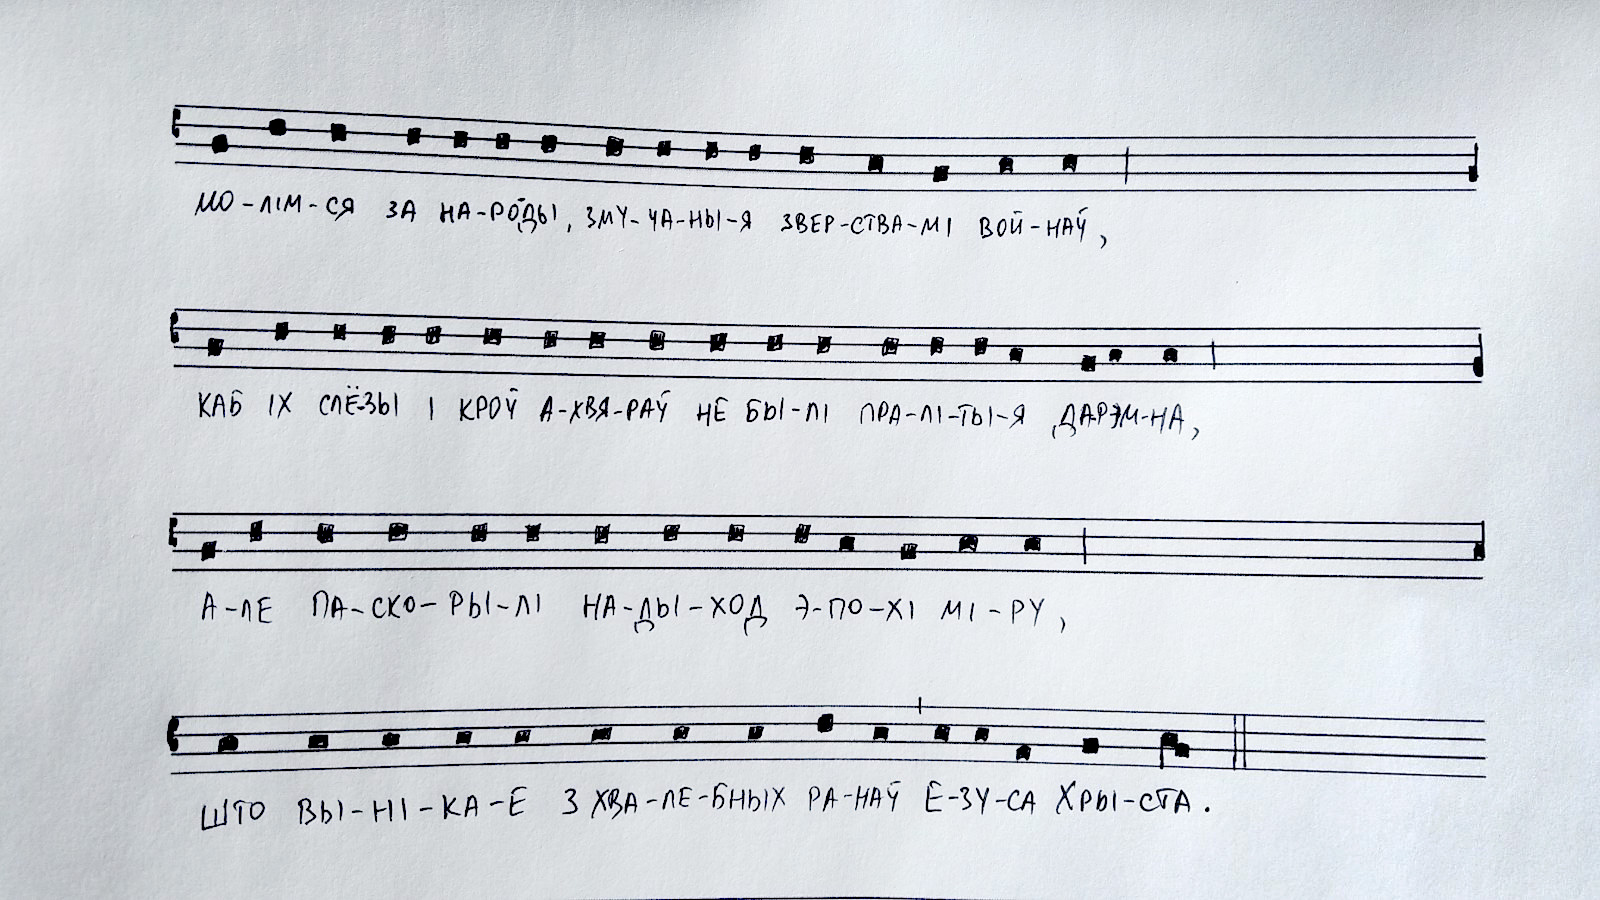 МО-ЛІМ-СЯ ЗА НА-РОДЫ, ЗМУ-ЧА-НЫ-Я ЗВЕР-СТВА-МІ ВОЙ-НАЎ,
КАБ ІХ СЛЁ-ЗЫ І КРОЎ А-ХВЯ-РАЎ НЕ БЫ-ЛІ ПРА-ЛІ-ТЫ-Я ДА-РЭМ-НА,
А-ЛЕ ПА-СКО-РЫ-ЛІ НА-ДЫ-ХОД Э-ПО-ХІ МІ-РУ,
ШТО ВЫ-НІ-КА-Е З ХВА-ЛЕ-БНЫХ РА-НАЎ Е-ЗУ-СА ХРЫ-СТА.